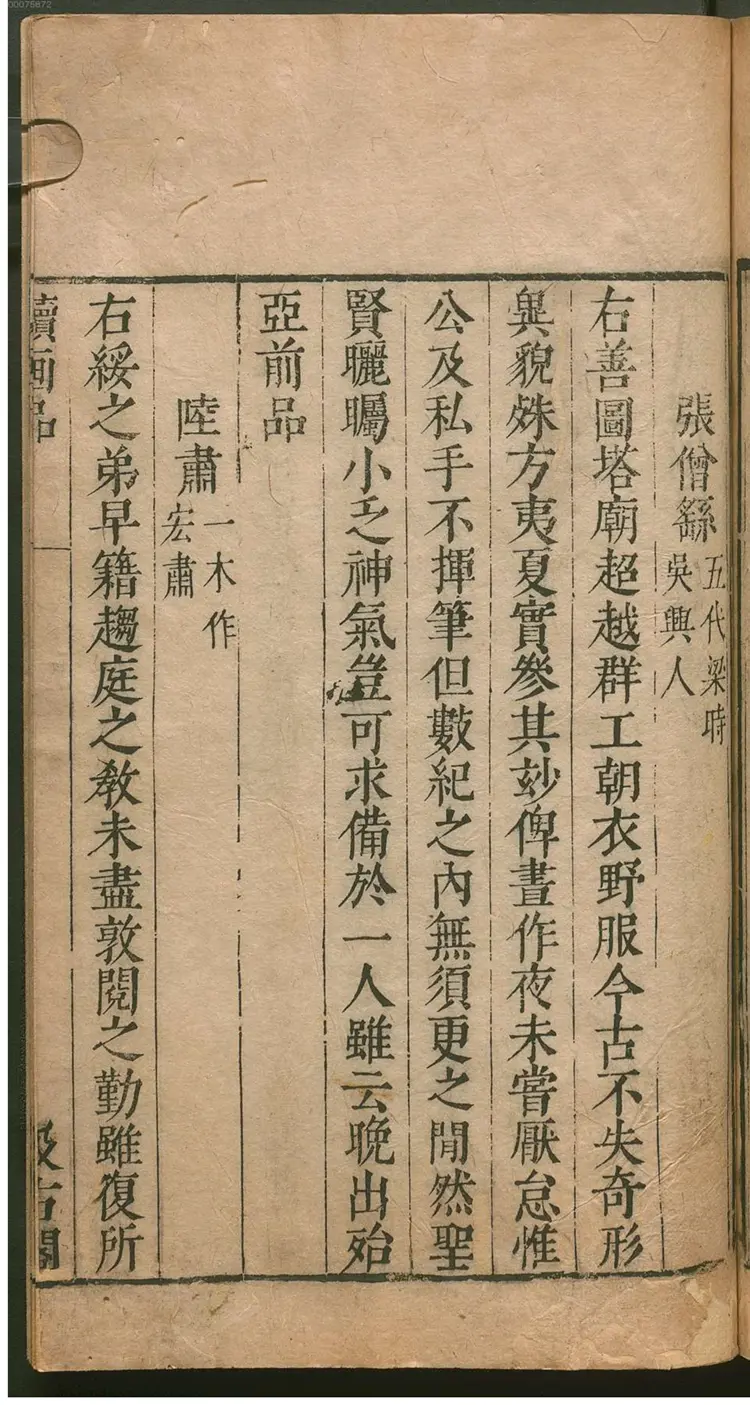 張僧繇五代梁時
吳興人
右善圖塔廟超越群工朝衣野服今古不失奇形
異貌殊方夷夏實參其玅俾晝作夜未嘗厭怠惟
公及私手不揮筆但數紀之內無須更之閒然聖
賢曬矚小乏神氣豈可求備於一人雖云晚出殆
亞前品
陸肅一木作
宏肅
右綏之弟早籍趨庭之敎未盡敦閱之勤雖復所
續画品
汲古閣
00075872